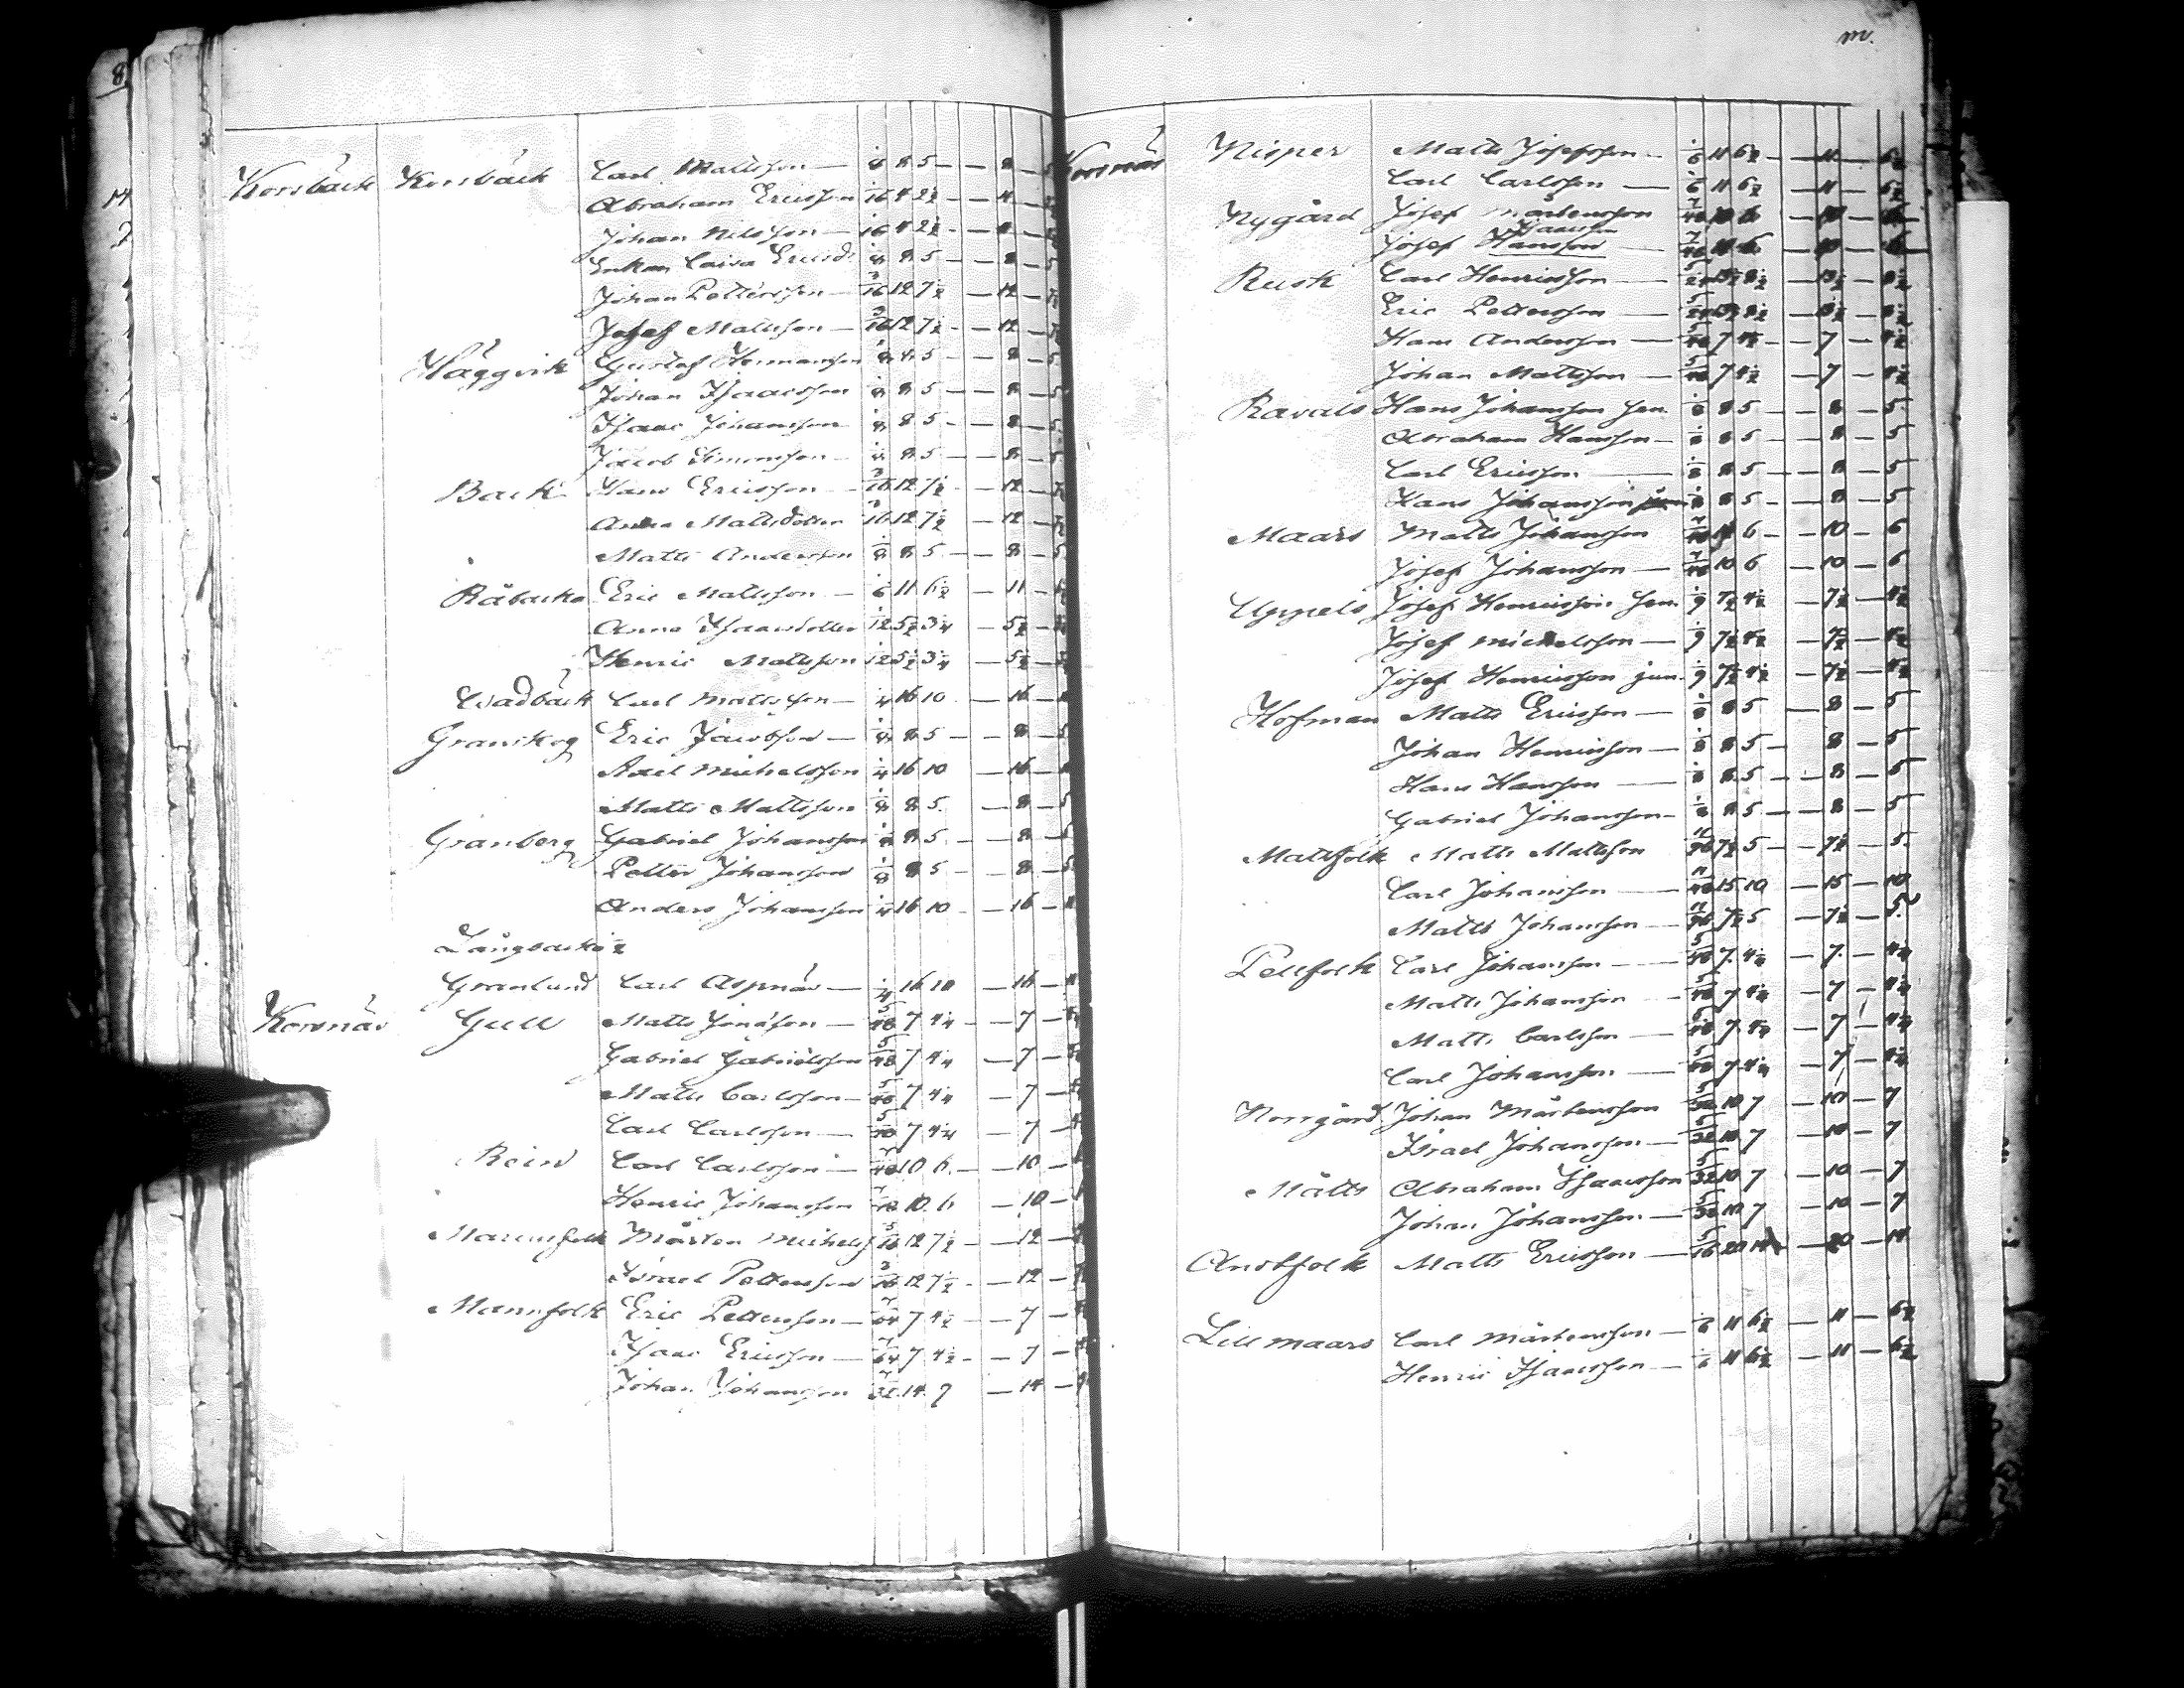 8.
Korsbäck Korsbäck Carl Mattsson — 1/8 8 5 — — 8 — 5
Abraham Ericsson 1/16 4 2 1/2 — — 4 —
Johan Nilsson — 1/16 4 2 1/2 — — 4 —
Enkan Caisa Ericsd: 1/8 8 5 — — 8 — 5
Johan Pettersson — 3/16 12 7 1/2 — 12 —
Josef Mattsson — 3/16 12 7 1/2 — — 12 —
Häggvik Gustaf Hermansson 1/8 8 5 — — 8 — 5
Johan Isaacsson 1/8 8 5 — — 8 — 5
Isaac Johansson 1/8 8 5 — — 8 — 5
Jacob Simonsson — 1/8 8 5 — — 8 — 5
Back Hans Ericsson — 3/16 12 7 1/2 — — 12 —
Anna Mattsdotter 3/16 12 7 1/2 — 12 —
Matts Andersson 1/8 8 5 — — 8 — 5
Råbacka Eric Mattsson — 1/6 11 6 1/2 — 11 —
Anna Isaacsdotter 1/12 5 1/2 3 1/4 — 5 1/2 —
Henric Mattsson 1/12 5 1/2 3 1/4 — 5 1/2 —
Wadbäck Carl Mattsson — 1/4 16 10 — 16 —
Granskog Eric Jacobsson — 1/8 8 5 — — 8 — 5
Axel Michelsson 1/4 16 10 — 16 —
Matts Mattsson 1/8 8 5. — 8 — 5
Granberg Gabriel Johansson 1/8 8 5. — 8 — 5
Petter Johansson 1/8 8 5 — — 8 — 5
Anders Johansson 1/4 16 10 — — 16 —
Långbacka 1/2
Granlund Carl Aspnäs — 1/4 16 10 — 16 —
Korsnäs Gull Matts Jonasson — 5/48 7 4 1/4 — — 7 —
Gabriel Gabrielsson 5/48 7 4 1/4 — 7 —
Matts Carlsson — 5/48 7 4 1/4 — 7 —
Carl Carlsson — 5/48 7 4 1/4 — 7 —
Rein Carl Carlsson — 7/48 10 6. — — 10 —
Henric Johansson 7/48 10. 6 — 10 —
Marcusfolk Mårten Michelss 3/16 12 7 1/2 — — 12 —
Israel Pettersson 3/16 12 7 1/2 — — 12 —
Mannfolk Eric Pettersson — 7/64 7 4 1/2 — — 7 —
Isaac Ericsson — 7/64 7 4 1/2 — — 7 —
Johan Johansson 7/32 14. 9 — 14 —
Korsnäs Nisper Matts Josefsson — 1/6 11 6 1/2 — — 11 — 6 1/2
Carl Carlsson — 1/6 11 6 1/2 — 11 — 6 1/2
Nygård Josef Mårtensson 7/48 10 6 — 10 — 6
Isaacsson
Josef Hansson — 7/48 10 6 — 10 — 6
Rusk Carl Henricsson — 5/24 13 1/2 8 1/2 — 13 1/2 — 8 1/2
Eric Pettersson — 5/24 13 1/2 8 1/2 — 13 1/2 — 8 1/2
Hans Andersson — 5/48 7 4 1/2 — — 7 — 4 1/2
Johan Mattsson — 5/48 7 4 1/2 — 7 — 4 1/2
Ravals Hans Johansson Sen. 1/8 8 5 — — 8 — 5
Abraham Hansson — 1/8 8 5 — — 8 — 5
Carl Ericsson — 1/8 8 5 — — 8 — 5
Hans Johansson jun 1/8 8 5 — — 8 — 5
Maars Matts Johansson 7/48 10 6 — — 10 — 6
Josef Johansson — 7/48 10 6 — 10 — 6
Uppels Josef Henricsson Sen. 1/9 7 1/2 4 1/2 — 7 1/2 — 4 1/2
Josef Michelsson — 1/9 7 1/2 4 1/2 — 7 1/2 — 4 1/2
Josef Henricsson jun. 1/9 7 1/2 4 1/2 — 7 1/2 — 4 1/2
Hofman Matts Ericsson — 1/8 8 5 — 8 — 5
Johan Henricsson — 1/8 8 5 — 8 — 5
Hans Hansson — 1/8 8 5 — — 8 — 5
Gabriel Johansson — 1/8 8 5 — — 8 — 5
Mattsfolk Matts Mattsson 11/96 7 1/2 5 — — 7 1/2 — 5.
Carl Johansson — 11/48 15 10 — 15 — 10
Matts Johansson — 11/96 7 1/2 5 — 7 1/2 — 5.
Pellfolk Carl Johansson — 5/48 7. 4 1/4 — 7. — 4 1/4
Matts Johansson — 5/48 7 4 1/4 — 7 — 4 1/4
Matts Carlsson — 5/48 7. 4 1/4 — 7 — 4 1/4
Carl Johansson — 5/48 7 4 1/4 — 7 — 4 1/4
Norrgård Johan Mårtensson 5/32 10 7 — 10 — 7
Israel Johansson — 5/32 10 7 — 10 — 7
Mätts Abraham Isaacsson 5/32 10 7 — 10 — 7
Johan Johansson — 5/32 10 7 — 10 — 7
Anstfolk Matts Ericsson — 5/16 20 14 — 20 — 14
Lillmaars Carl Mårtensson — 1/6 11 6 1/2 — 11 — 6 1/2
Henric Isaacsson — 1/6 11 6 1/2 — 11 — 6 1/2